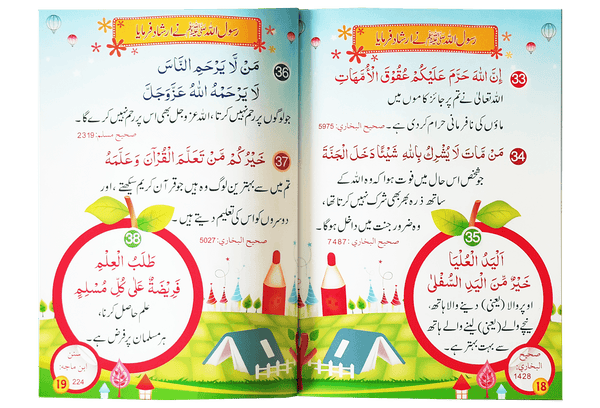 رسول اللہ ﷺ نے ارشاد فرمایا
33
اِنَّ اللهَ حَرَّمَ عَلَيْكُمْ عُقُوْقَ الْاُمَّهَاتِ
اللہ تعالیٰ نے تم پر جائز کاموں میں
ماؤں کی نافرمانی حرام کر دی ہے۔ صحيح البخاري: 5975
34
مَنْ مَاتَ لَا يُشْرِكُ بِاللهِ شَيْئًا دَخَلَ الْجَنَّةَ
جو شخص اس حال میں فوت ہوا کہ وہ اللہ کے
ساتھ ذرہ بھر بھی شرک نہیں کرتا تھا،
وہ ضرور جنت میں داخل ہوگا۔
صحيح البخاري: 7487
35
اَلْيَدُ الْعُلْيَا
خَيْرٌ مِّنَ الْيَدِ السُّفْلٰى
اوپر والا (یعنی) دینے والا ہاتھ،
نیچے والے (یعنی) لینے والے ہاتھ
سے بہت بہتر ہے۔
صحيح
البخاري:
1428
18
رسول اللہ ﷺ نے ارشاد فرمایا
36
مَنْ لَا يَرْحَمِ النَّاسَ
لَا يَرْحَمْهُ اللهُ عَزَّوَجَلَّ
جو لوگوں پر رحم نہیں کرتا، اللہ عزوجل بھی اس پر رحم نہیں کرے گا۔
صحيح مسلم: 2319
37
خَيْرُكُمْ مَنْ تَعَلَّمَ الْقُرْاٰنَ وَعَلَّمَهُ
تم میں سے بہترین لوگ وہ ہیں جو قرآن کریم سیکھتے، اور
دوسروں کو اس کی تعلیم دیتے ہیں۔
صحيح البخاري: 5027
38
طَلَبُ الْعِلْمِ
فَرِيْضَةٌ عَلٰى كُلِّ مُسْلِمٍ
علم حاصل کرنا،
ہر مسلمان پر فرض ہے۔
سنن
ابن ماجه:
224
19